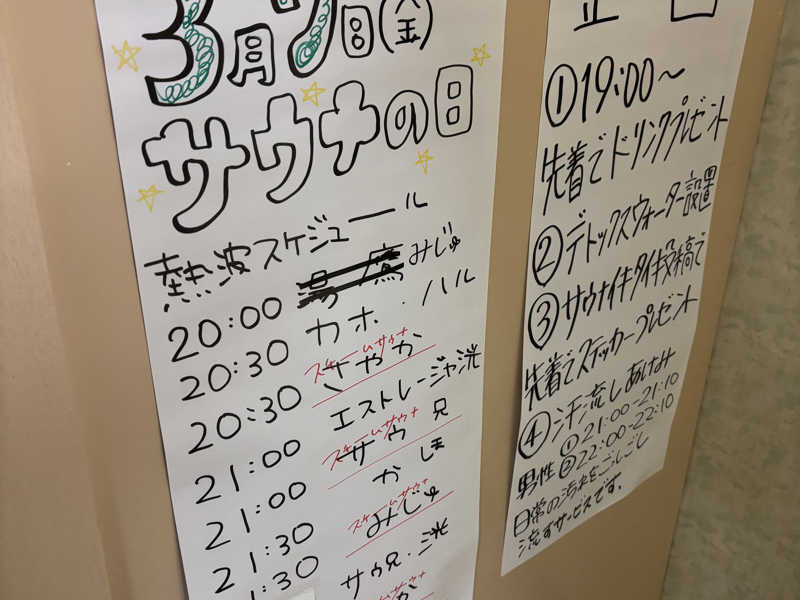 3月7日(金)
サウナの日
熱波スケジュール
20:00 みじゅ
20:30 カホ・ハル
スチームサウナ
20:30 さやか
21:00 エストレージャ洸
スチームサウナ
21:00 サウ兄
21:30 かほ
スチームサウナ
みじゅ
:30 サウ兄・洸
スチームサウナ
か
①19:00〜
先着でドリンクプレゼント
②デトックスウォーター設置
③サウナイキタイ投稿で
先着でステッカープレゼント
④汗流しあけなみ
男性 ①21:00-21:10
②22:00-22:10
日常の汚れをごしごし
流すサービスです。